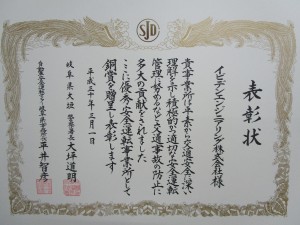 SJD
表彰状
イビデンエンジニアリング株式会社様
貴事業所は平素から交通安全に深い
理解を示し積極的かつ適切な安全運転
管理に努めるなど交通事故の防止に
多大の貢献をされました
ここに優秀安全運転事業所として
銅賞を贈呈し表彰します
平成三十年三月一日
岐阜県大垣警察署長 大坪道明
自動車安全運転センター岐阜県事務所長 平井智彦